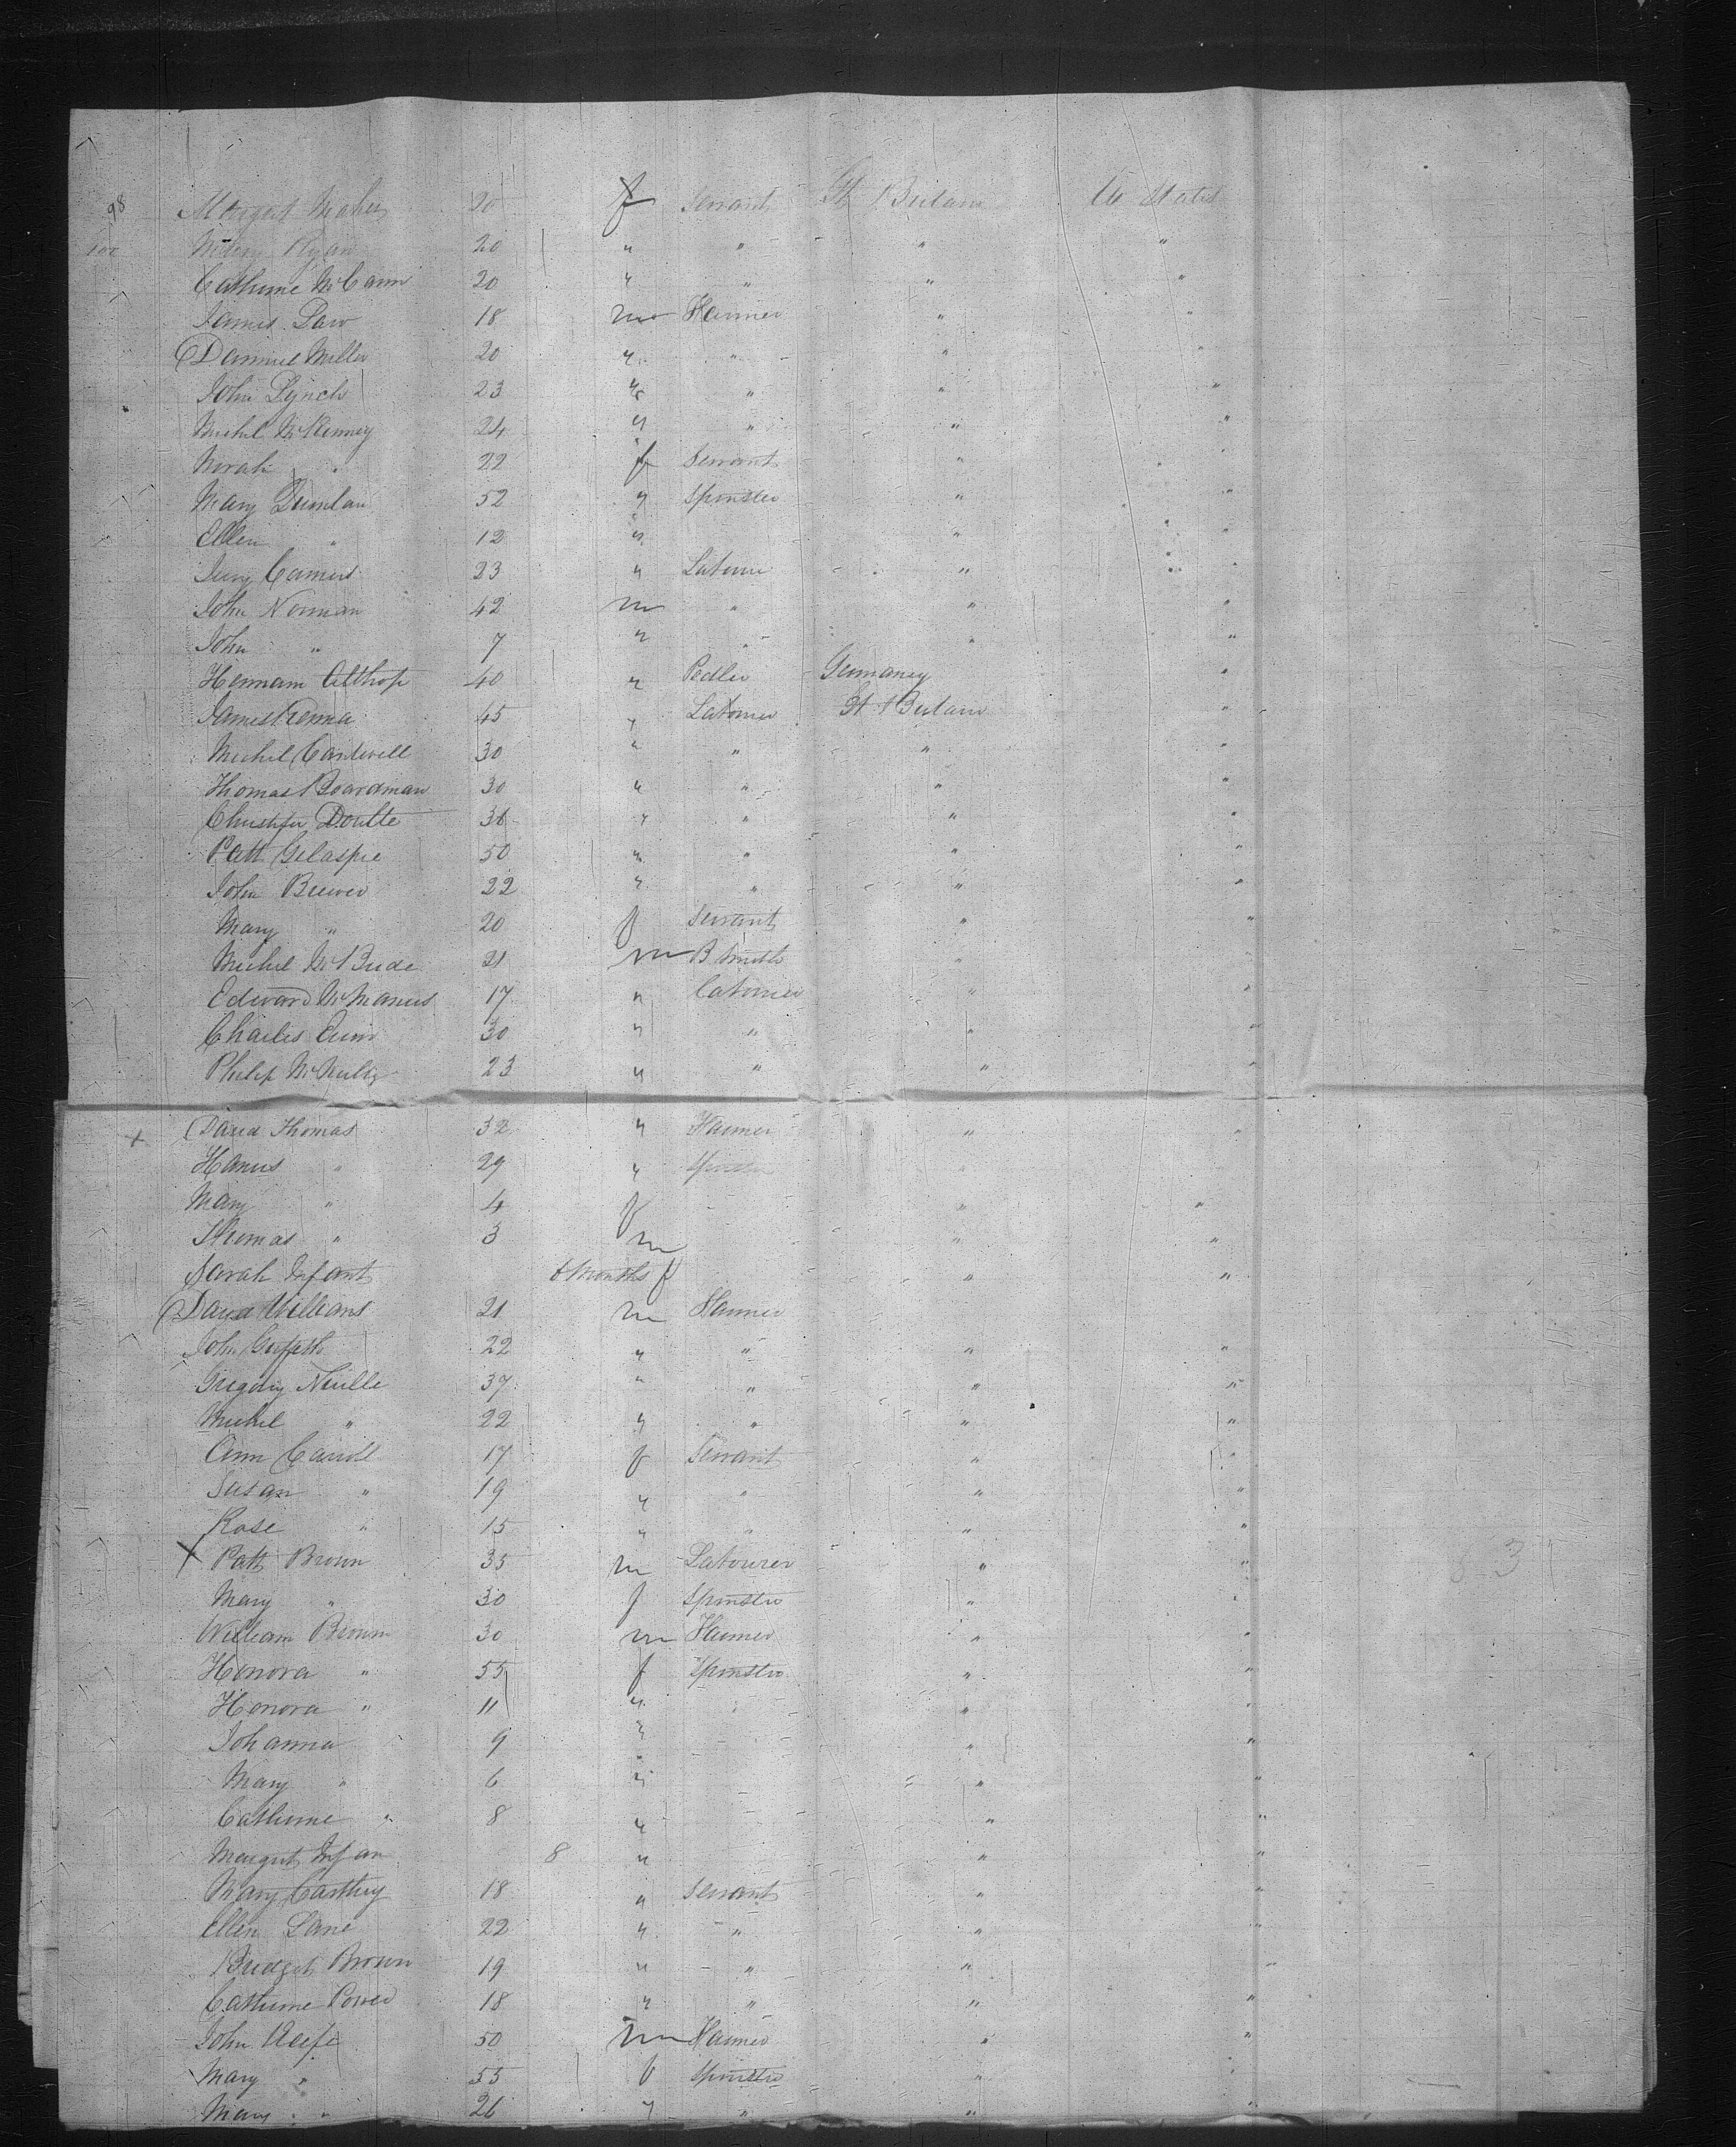 98 Margret Maher 20 f Servant Gt Britain U States
100 Mary Ryan 20 " " " "
Catherine McCann 20 " " " "
James Law 18 m Farmer " "
Danniel Miller 20 " " " "
John Lynch 23 " " " "
Michel McKenney 24 " " " "
Norah " 22 f Servant " "
Mary Quinlan 52 " Spinster " "
Ellen " 12 " " "
John Norman 42 m " " "
John " 7 " " " "
Hermann Althop 40 " Pedler Germaney "
James Kenna 45 " Labourer Gt Britain "
Michel Cardwell 30 " " " "
Thomas Boardman 30 " " " "
Christifer Doulte 31 " " " "
Patt Gelaspie 50 " " " "
John Brewer 22 " " " "
Mary " 20 f Servant " "
Michel McBride 21 m B Smith " "
Edward McManus 17 " Labourer " "
Charles Quinn 30 " " " "
Philip McNulty 23 " " " "
+ David Thomas 32 " Farmer " "
29 " Spinster "
Mary " 4 f " "
Thomas " 3 m " "
Sarah Infant 6 Months f " "
David Williams 21 m Farmer
John Griffith 22 " " " "
Gregory Neville 37 " " " "
Michel " 22 " " " "
Ann Carroll 17 f Servant " "
Susan " 19 " " " "
Rose " 15 " " " "
X Patt Brown 35 m Labourer " "
Mary " 30 f Spinster " "
William Brown 30 m Farmer " "
Honora " 55 f Spinster " "
Honora " 11 " " "
Johanna 9 " " "
Mary " 6 " " "
Catherine " 8 " " "
Margret Infan 8 " " "
Mary Carthey 18 " Servant " "
Ellen Lane 22 " " " "
Bridget Brown 19 " " " "
Catherine Power 18 " " " "
John Keefe 50 m Farmer " "
Mary " 55 f Spinster " "
Mary " 26 " " " "